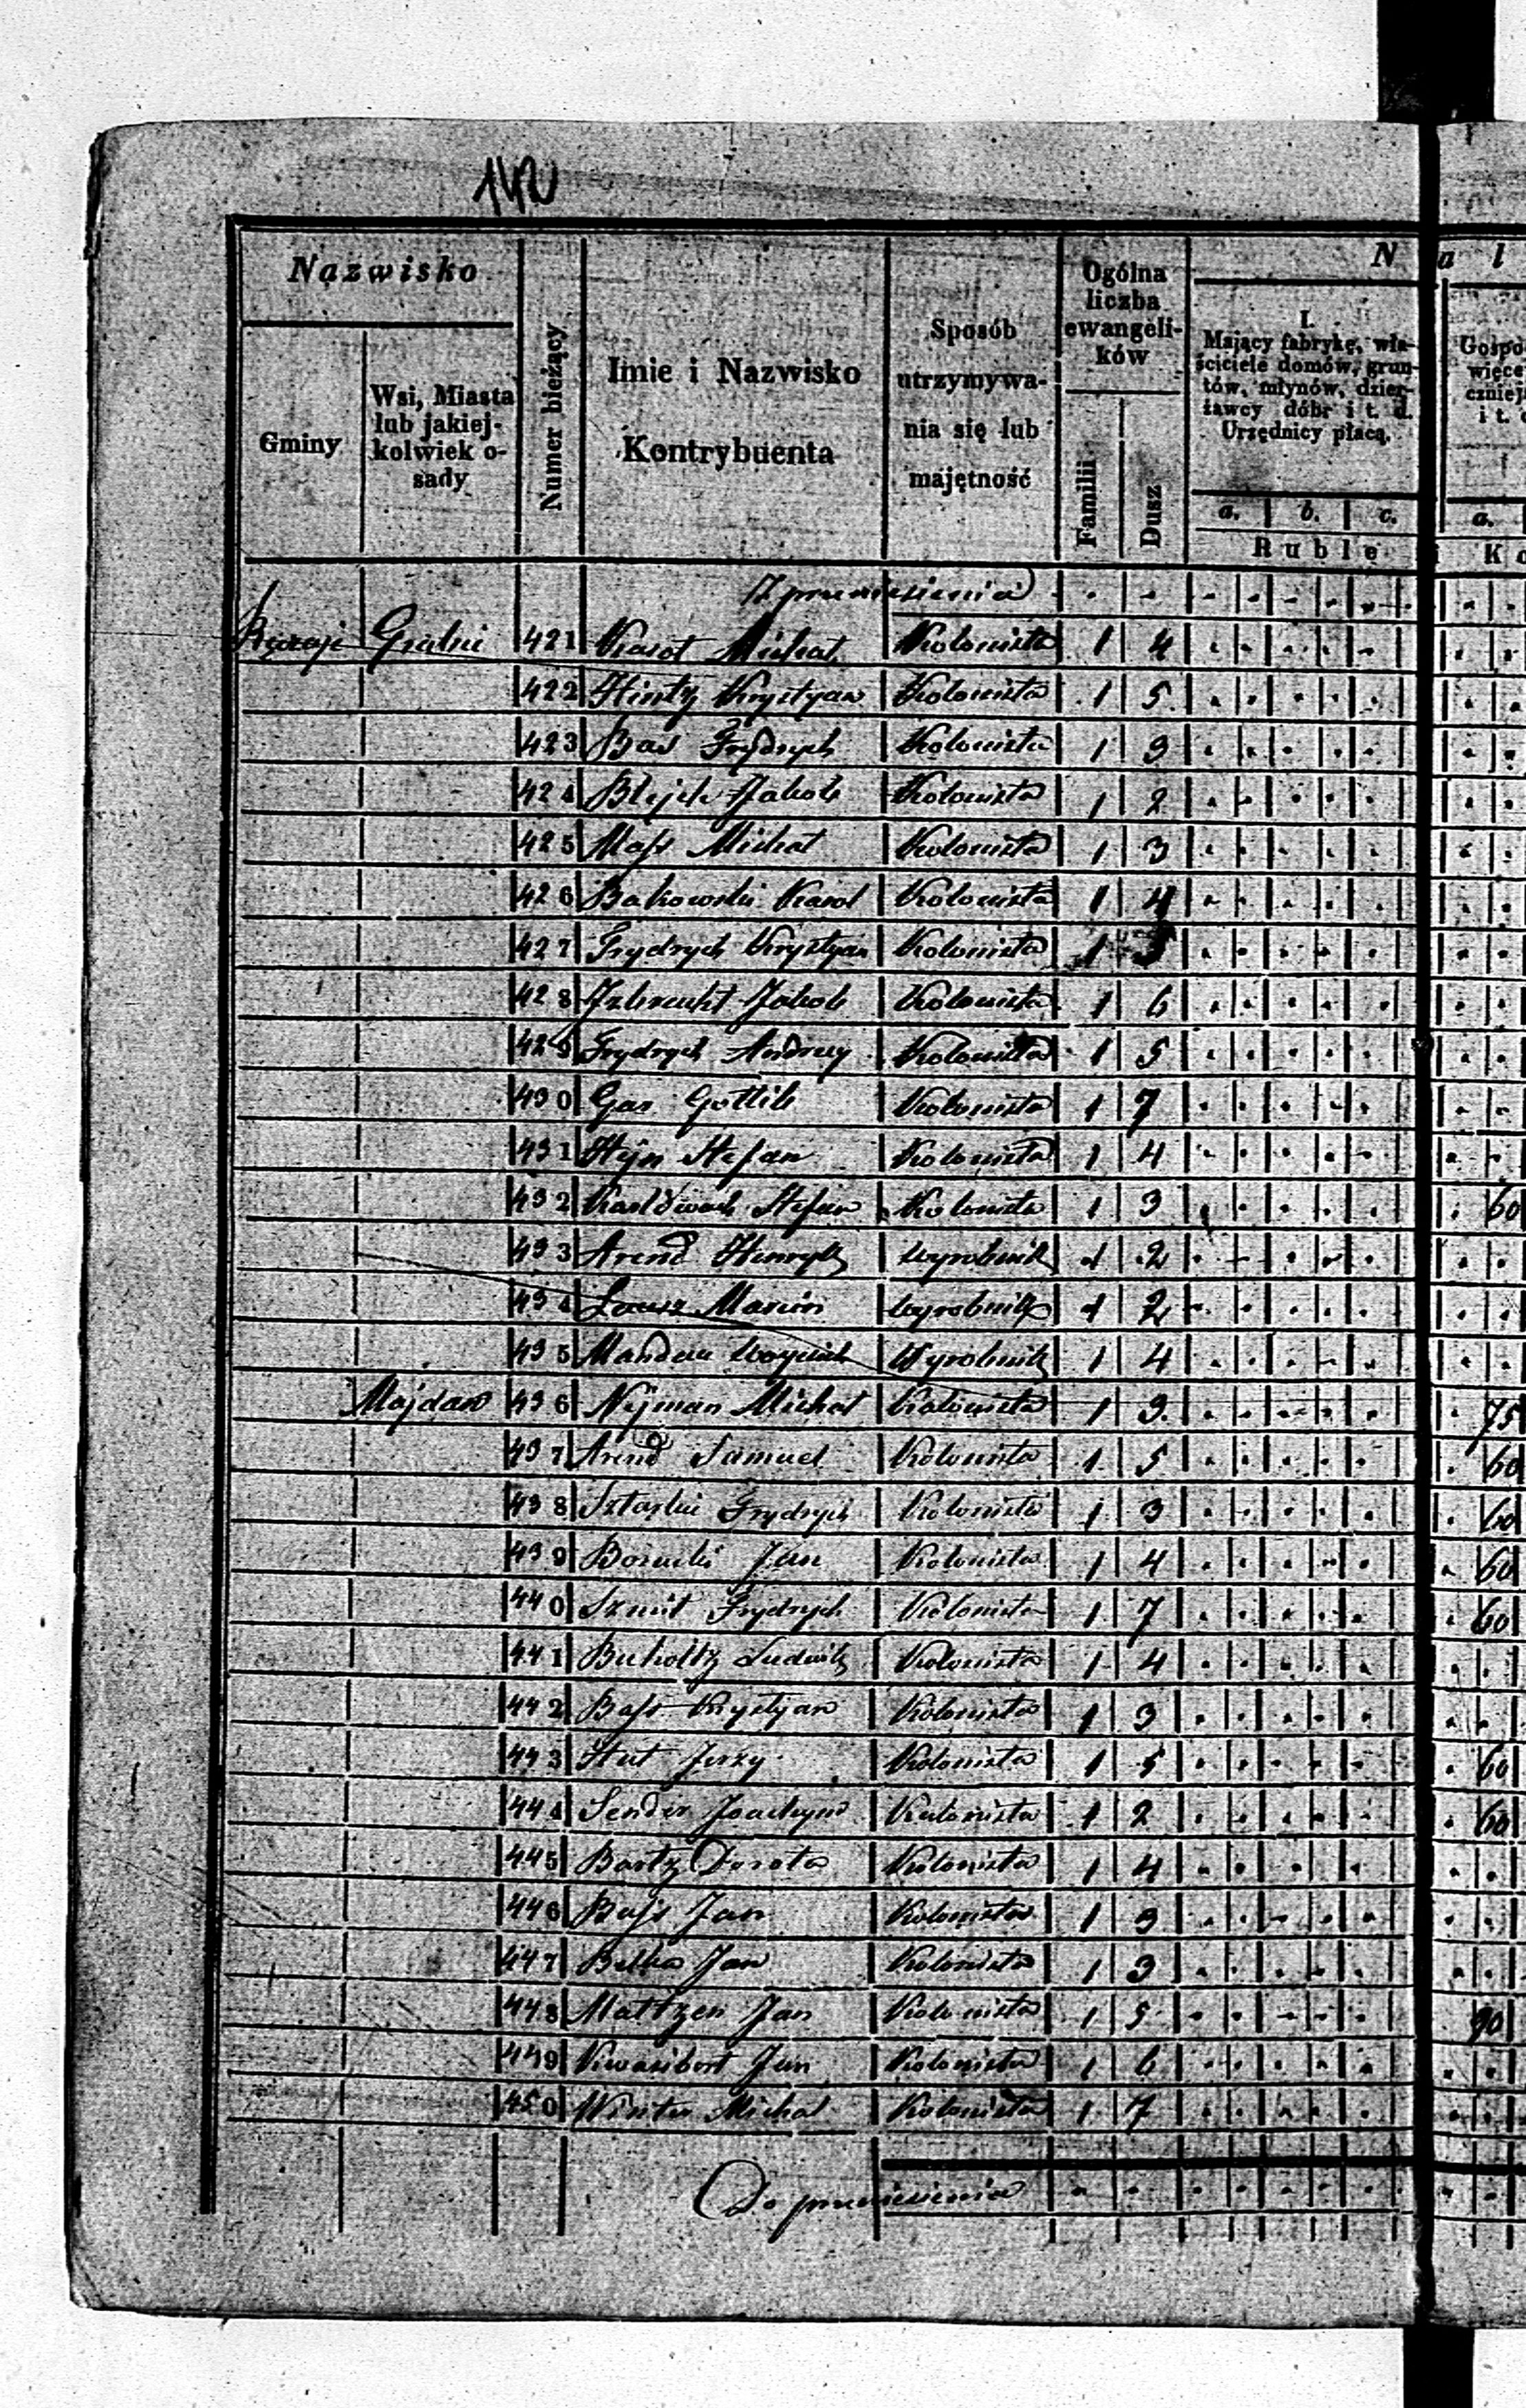 142
Nazwisko
Gminy
Wsi, Miasta lub jakiej-kolwiek o-sady
Numer bieżący
Imie i Nazwisko Kontrybuenta
Sposób utrzymywa-nia się lub majętność
Ogólna liczba ewangeli-ków
Familii
Dusz
N a l
I. Mający fabrykę, wła-ściciele domów, grun-tów, młynów, dzier-żawcy dóbr i t. d. Urzędnicy płacą.
a. b. c.
Ruble
Gospo
więce
czniej
i t.
a.
K o
Z przeniesienia
421 Michał Kolonista 1 4
422 Hintz Krystyan Kolonista 1 5
423 Bas Frydrych Kolonista 1 3
424 Jakob Kolonista 1 2
425 Mass Michał Kolonista 1 3
426 Bakowski Karol Kolonista 1 4
427 Frydrych Krystyan Kolonista 1 5
428 Jakob Kolonista 1 6
429 Frydrych Andrzey Kolonista 1 5
430 Gottlib Kolonista 1 7
431 Hejn Stefan Kolonista 1 4
432 Stefan Kolonista 1 3 60
433 Arend Henryk wyrobnik 1 2
434 Marcin wyrobnik 1 2
435 Wyrobnik 1 4
Majdan 436 Nejman Michał Kolonista 1 3 75
437 Arend Samuel Kolonista 1 5 60
438 Frydrych Kolonista 1 3 60
439 Jan Kolonista 1 4 60
440 Szmit Frydrych Kolonista 1 7 60
441 Bucholtz Ludwik Kolonista 1 4
442 Bass Krystjan Kolonista 1 3
443 Jerzy Kolonista 1 5 60
444 Sender Joachym Kolonista 1 2 60
445 Bartz Dorota Kolonista 1 4
446 Bass Jan Kolonista 1 3
447 Belka Jan Kolonista 1 3
448 Mattzen Jan Kolonista 1 5 90
449 Jan Kolonista 1 6
450 Winter Michał Kolonista 1 7
Do przeniesienia